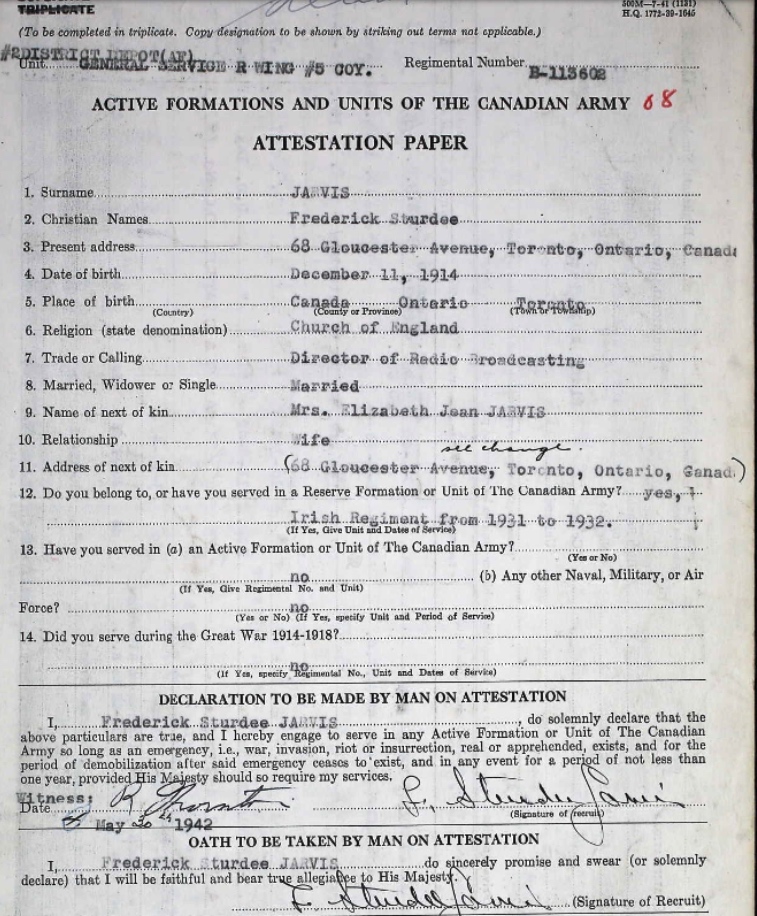 TRIPLICATE
500M—7-41 (1131)
H.Q. 1772-39-1645
(To be completed in triplicate. Copy designation to be shown by striking out terms not applicable.)
#2DISTRICT DEPOT(AF)
Unit GENERAL SERVICE R WING #5 COY. Regimental Number B-113602
ACTIVE FORMATIONS AND UNITS OF THE CANADIAN ARMY 68
ATTESTATION PAPER
1. Surname JARVIS
2. Christian Names Frederick Sturdee
3. Present address 68 Gloucester Avenue, Toronto, Ontario, Canada
4. Date of birth December 11, 1914
5. Place of birth Canada Ontario Toronto
(Country) (County or Province) (Town or Township)
6. Religion (state denomination) Church of England
7. Trade or Calling Director of Radio Broadcasting
8. Married, Widower or Single Married
9. Name of next of kin Mrs. Elizabeth Jean JARVIS
10. Relationship Wife
see change.
11. Address of next of kin (68 Gloucester Avenue, Toronto, Ontario, Canad.)
12. Do you belong to, or have you served in a Reserve Formation or Unit of The Canadian Army? yes,
Irish Regiment from 1931 to 1932.
(If Yes, Give Unit and Dates of Service)
13. Have you served in (a) an Active Formation or Unit of The Canadian Army?
(Yes or No)
no (b) Any other Naval, Military, or Air
(If Yes, Give Regimental No. and Unit)
Force? no
(Yes or No) (If Yes, specify Unit and Period of Service)
14. Did you serve during the Great War 1914-1918?
no
(If Yes, specify Regimental No., Unit and Dates of Service)
DECLARATION TO BE MADE BY MAN ON ATTESTATION
I, Frederick Sturdee JARVIS, do solemnly declare that the
above particulars are true, and I hereby engage to serve in any Active Formation or Unit of The Canadian
Army so long as an emergency, i.e., war, invasion, riot or insurrection, real or apprehended, exists, and for the
period of demobilization after said emergency ceases to exist, and in any event for a period of not less than
one year, provided His Majesty should so require my services.
Witness:
F. Sturdee Jarvis
Date May 1942
(Signature of recruit)
OATH TO BE TAKEN BY MAN ON ATTESTATION
I, Frederick Sturdee JARVIS do sincerely promise and swear (or solemnly
declare) that I will be faithful and bear true allegiance to His Majesty.
F. Sturdee Jarvis (Signature of Recruit)